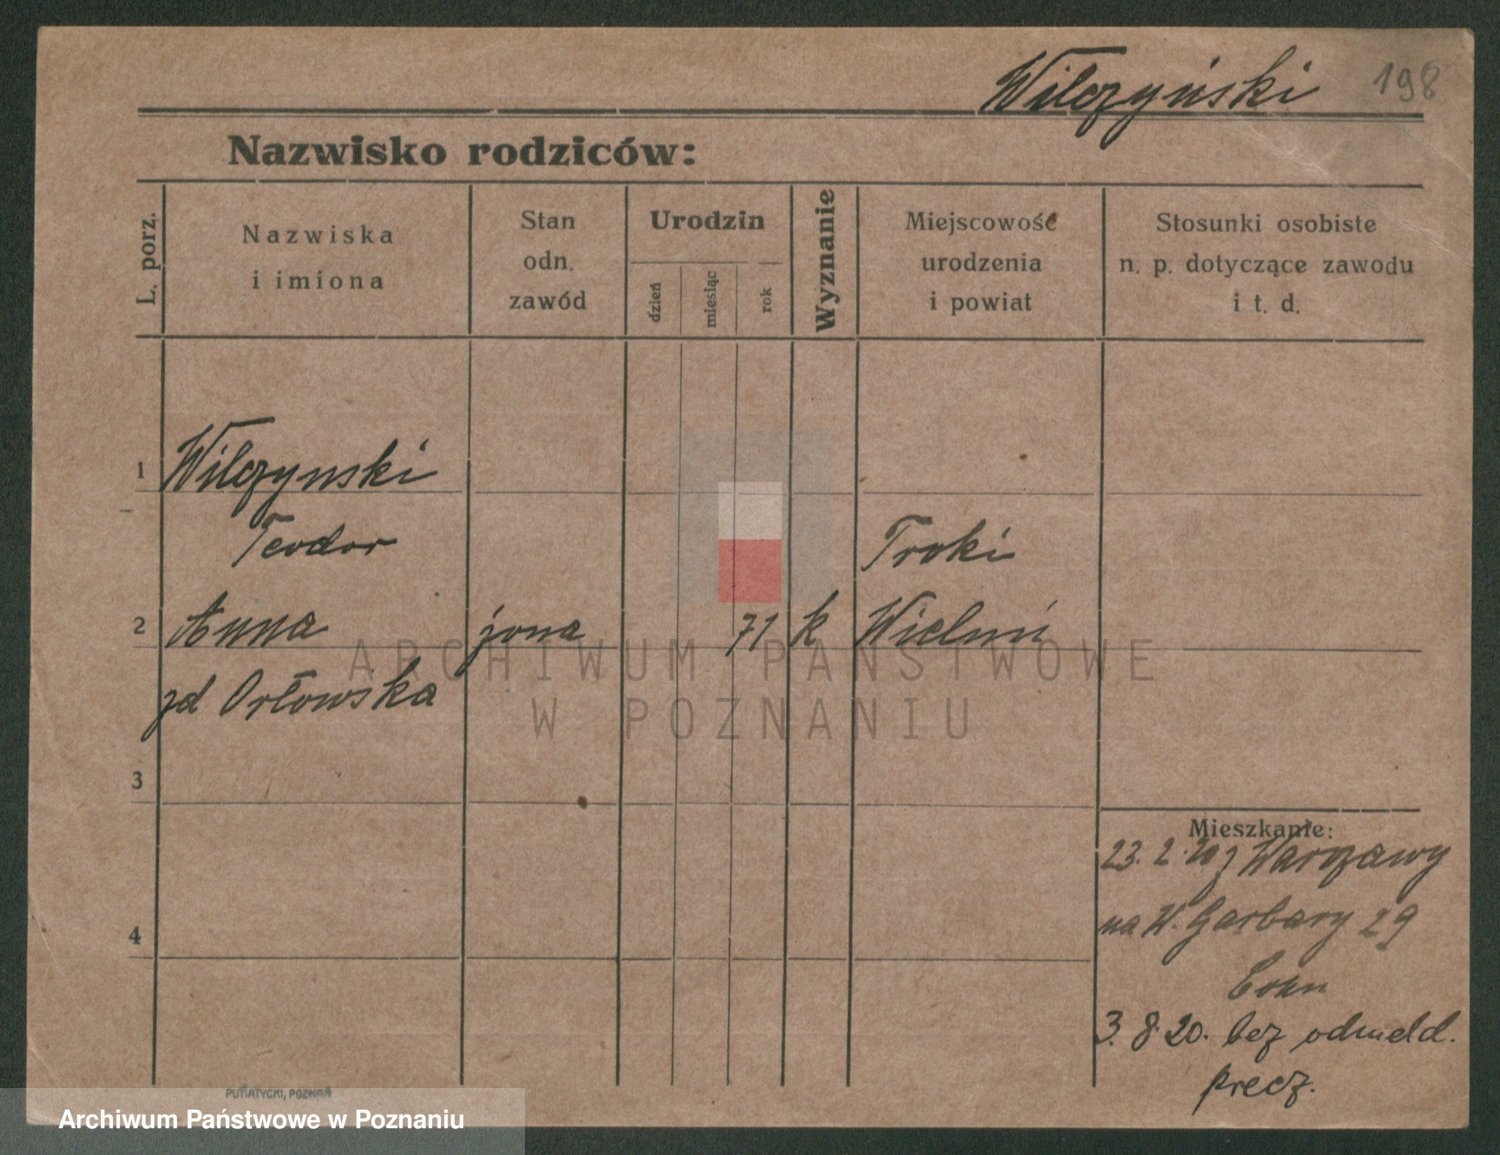 Wilczyński 198
Nazwisko rodziców:
L. porz.
Nazwiska
i imiona
Stan
odn.
zawód
Urodzin
dzień
miesiąc
rok
Wyznanie
Miejscowość
urodzenia
i powiat
Stosunki osobiste
n. p. dotyczące zawodu
i t. d.
1 Wilczynski
Teodor Troki
2 Anna żona 71 k
zd Orłowska
ARCHIWUM PAŃSTWOWE
W POZNANIU
3
Mieszkanie:
23. 2. 20 z Warszawy
na W. Garbary 29
4
3. 8. 20. bez odmeld.
precz.
PUTIATYCKI, POZNAŃ
Archiwum Państwowe w Poznaniu